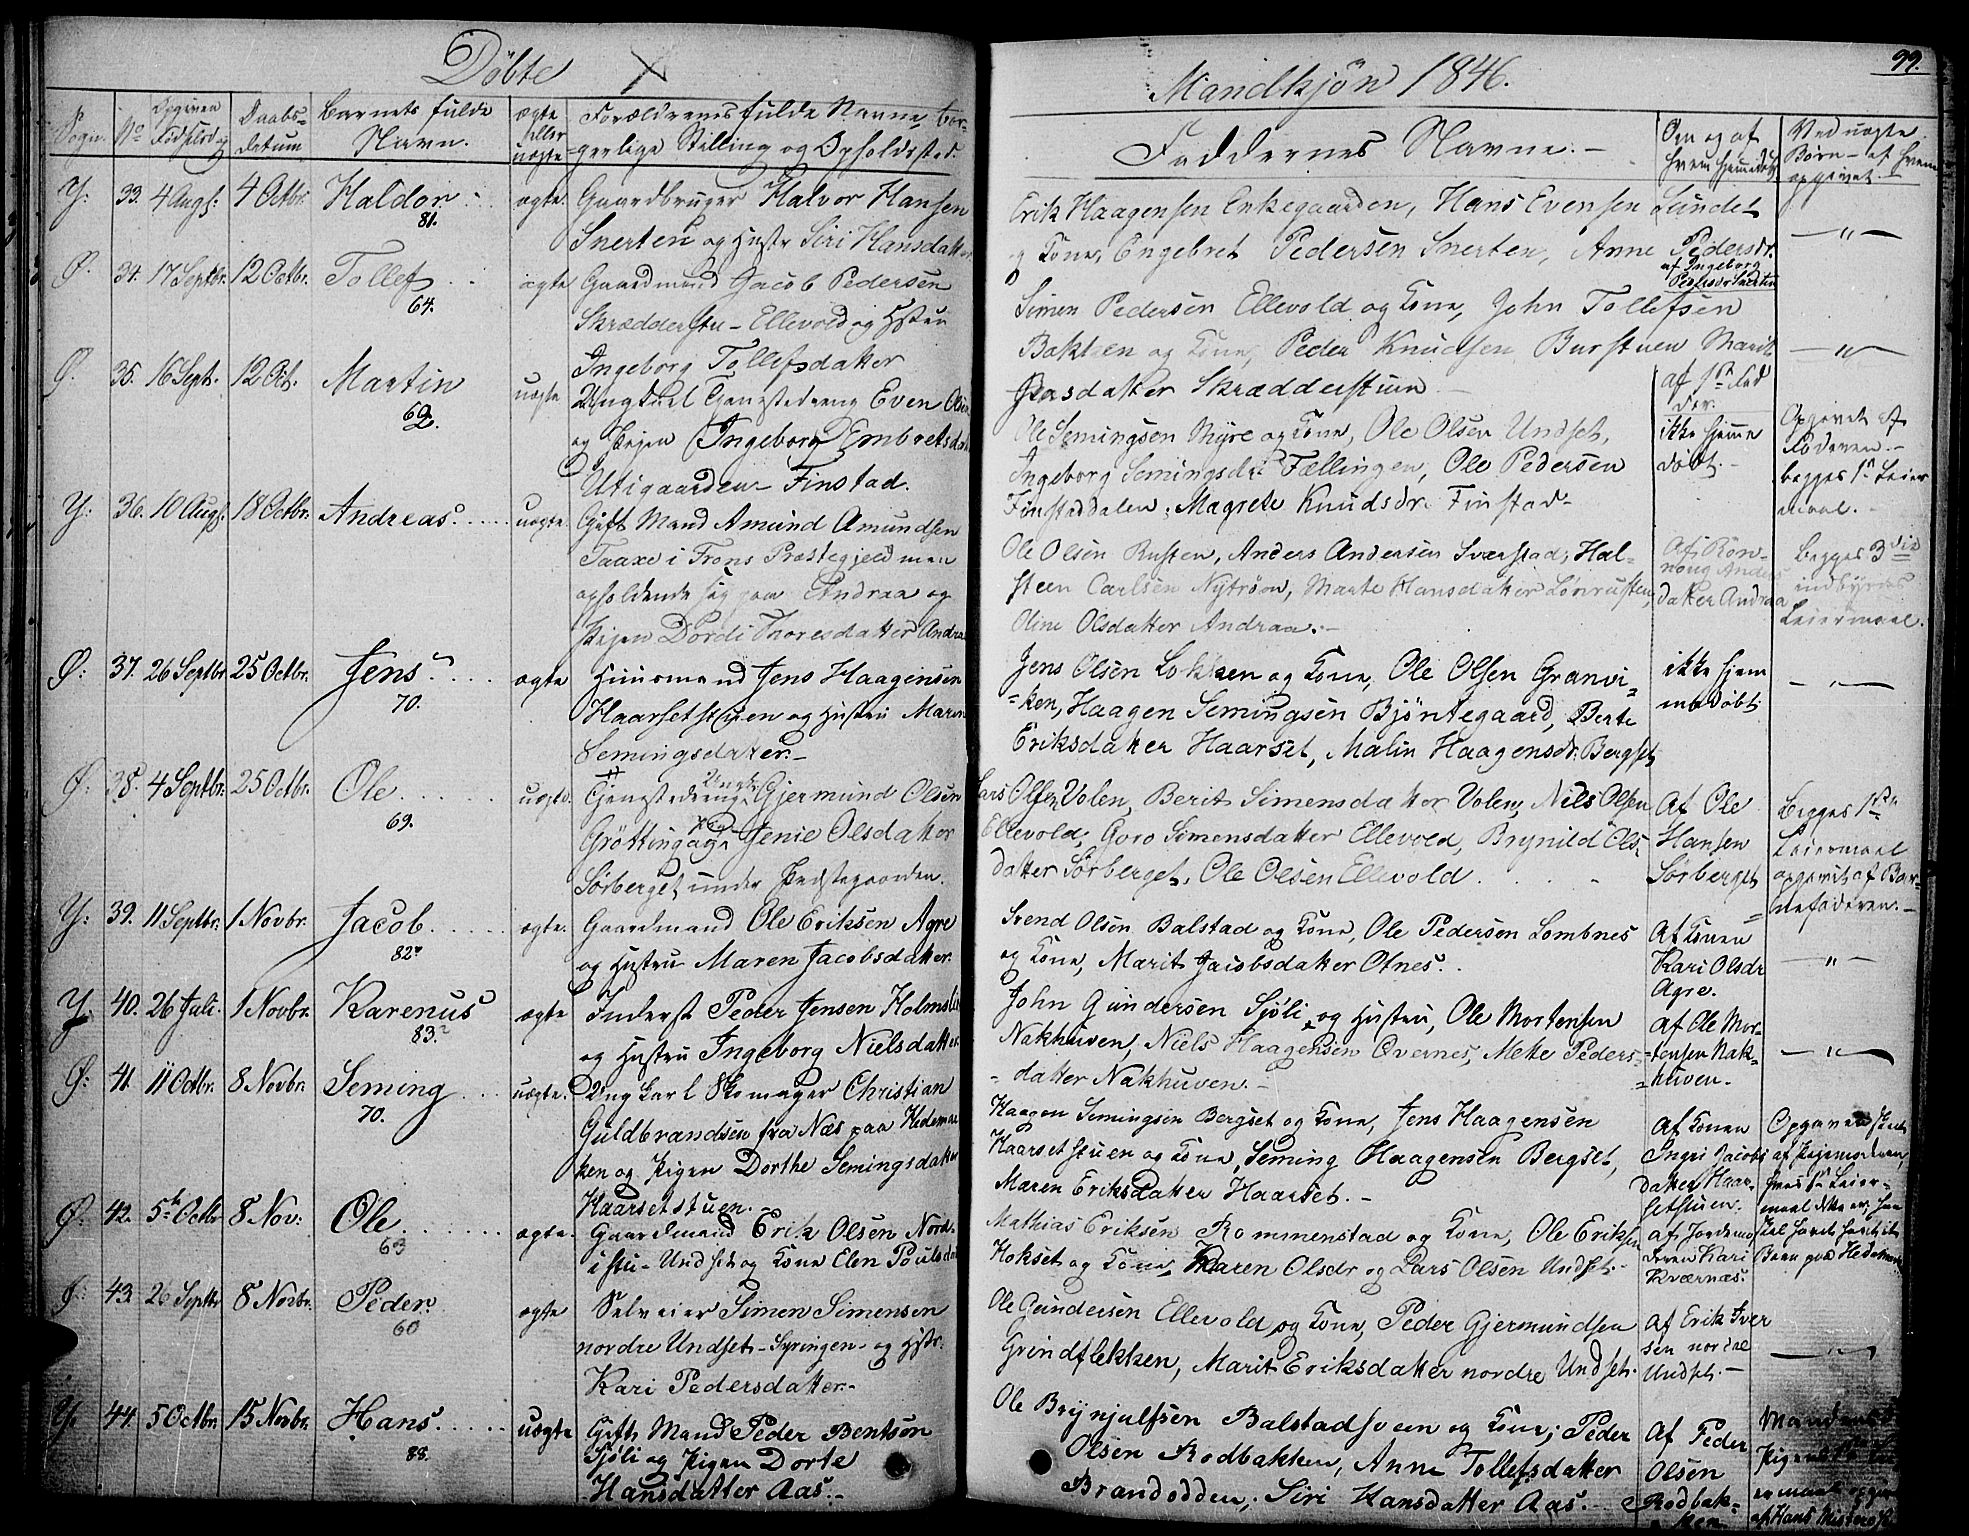 Döbte
Sogn. No Opgiven Födselsdag Daabs-datum Barnets fulde Navn. ægte eller uægte Forældrenes fulde Navne, bor-
gerlige Stilling og Opholdssted.
Y: 33. 4 Augs: 4 Octbr. Haldor 81. ægte. Gaardbruger Halvor Hansen
Snerten og Hustr Siri Hansdatter
Ø. 34. 17 Septbr. 12 Octbr. Tollef 64. ægte Gaardmand Jacob Pedersen
Skrædderstu - Ellevold og Hstru
Ingeborg Tollefsdatter
Ø. 35. 16 Sept. 12 Oct. Martin 62. uægte Ungkarl Tjenestedreng Even Olsen
og Pigen Ingeborg Embretsdatt
Utigaarden - Finstad.
Y: 36. 10 Augs. 18 Octbr. Andreas. uægte. Gift Mand Amund Amundsen
Taaxe i Frons Præstegjeld men
opholdende sig paa Andraa og
Pigen Dordi Thoresdatter Andraa
Ø: 37. 26 Septbr 25 Octbr. Jens 70. ægte Huusmand Jens Haagensen
Haarsetstuen og Hustru Maren
Semingsdatter.-
Ø: 38. 4 Septbr. 25 Octbr. Ole 69. uægte. Tjenestedreng Ungk. Gjermund Olsen
Grötting og Pig. Jenie Olsdatter
Sörberget under Præstegaarden.
Y: 39. 11 Septbr. 1 Novbr. Jacob 82. ægte. Gaardmand Ole Eriksen Agre
og Hustru Maren Jacobsdatter.
Y: 40. 26 Juli. 1 Novbr. Karenus 83. ægte Inderst Peder Jensen Holmsli
og Hustru Ingeborg Nielsdatter.
Ø: 41. 11 Octbr. 8 Novbr. Seming 70. uægte. Ungkarl Skomager Christian
Guldbrandsen fra Næs paa Hedemar
ken og Pigen Dorthe Semingsdatter
Haarsetstuen.
Ø: 42. 5te Octbr 8 Nov: Ole 63 ægte. Gaardmand Erik Olsen Nord-
istu - Undset og Kone Elen Poulsdat
Ø: 43. 26 Septbr 8 Novbr. Peder. 60 ægte Selveier Simen Simensen
nordre Undset - Syringen - og Hstr:
Kari Pedersdatter.-
Y. 44. 5 Octbr. 15 Novbr. Hans 88. uægte Gift Mand Peder Bentsen
Sjöli og Pigen Dorte
Hansdatter Aas.-
99.
Mandkjön 1846.
Faddernes Navne.-
Om og af hvem hjemmedöbt
Ved uægte Börn - af hvem opgivet.
Erik Haagensen Enkegaarden, Hans Evensen Lundet
og Kone, Engebret Pedersen Snerten, Anne Pedersdr.
af Ingeborg Pedersdr Snerten
Simen Pedersen Ellevold og Kone, John Tollefsen
Bakken og Kone, Peder Knudsen Burstuen Marit
Jensdatter Skrædderstuen
af 1ste Fadder.
Ole Semingsen Myre og Kone, Ole Olsen Undset,
Ingeborg Semingsdr Fællingen, Ole Pedersen
Finstaddalen, Magrete Knudsdr. Finstad-
ikke hjemmedöbt.-
Opgivet af Moderen.- begges 1ste Leiermaal.
Ole Olsen Rusten, Anders Andersen Sværstad; Hal-
steen Carlsen Nytröen, Marte Hansdatter Lönrusten,
Oline Olsdatter Andraa.-
Af Rönnaug Andersdatter Andraa
begges 3die indbyrdes Leiermaal.
Jens Olsen Lokkeen og Kone, Ole Olsen Granvi-
ken, Haagen Semingsen Bjöntegaard, Berte
Eriksdatter Haarset, Malin Haagensdr. Bergset
ikke hjemmedöbt
Lars Olsen Volen, Berit Simensdatter Volen, Nils Olsen
Ellevold, Goro Simensdatter Ellevold, Brynild Ols-
datter Sörberget, Ole Olsen Ellevold.
Af Ole Hansen Sörberget
begges 1ste Leiermaal opgivet af Barnefaderen.-
Svend Olsen Balstad og Kone, Ole Pedersen Lombnes
og Kone, Marit Jacobsdatter Otnes.
Af Konen Kari Olsdr Agre.
John Gundersen Sjöli og Hustru, Ole Mortensen
Nakhuven, Niels Haagensen Overnes, Mette Peders-
datter Nakhuven.-
af Ole Mortensen Nakhuven.
Haagen Semingsen Bergset og Kone, Jens Haagensen
Haarsetstuen og Kone, Seming Haagensen Bergset,
Maren Eriksdatter Haarset.-
af Konen Ingri Jacobsdatter Haarsetstuen.
Opgaven skeet af Pigemoderen, hvis 1ste Leiermaal dette er; han skal havt havt it Barn paa Hedemarken
Mathias Eriksen Rommenstad og Kone, Ole Eriksen
Hokset og Kone, Karen Olsdr og Lars Olsen Undset.-
af Jordemoderen Kari Kværnæs.
Ole Gundersen Ellevold og Kone, Peder Gjermundsen
Grindflekken, Marit Eriksdatter nordre Undset.
af Erik Iversen nordre Undset.-
Ole Brynjulfsen Balstadsveen og Kone; Peder
Olsen Rodbakken, Anne Tollefsdatter
Brandodden, Siri Hansdatter Aas.-
Af Peder Olsen Rodbakken
Mandens Pigens Leiermaal opgivet af Hans